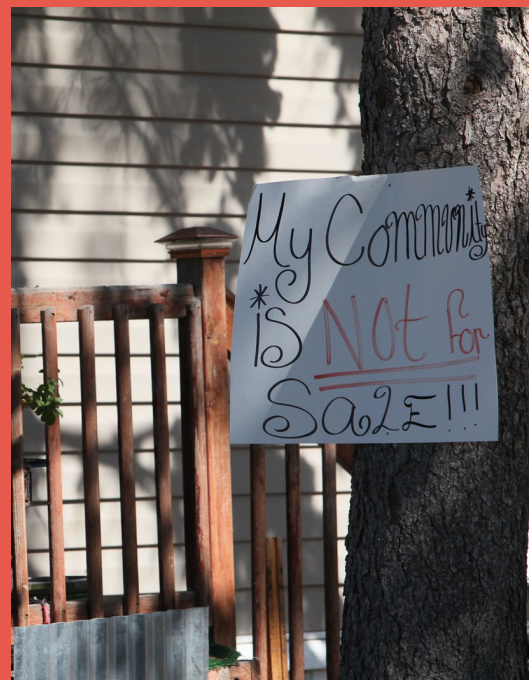 My Community
is NOt for
SaLE!!!